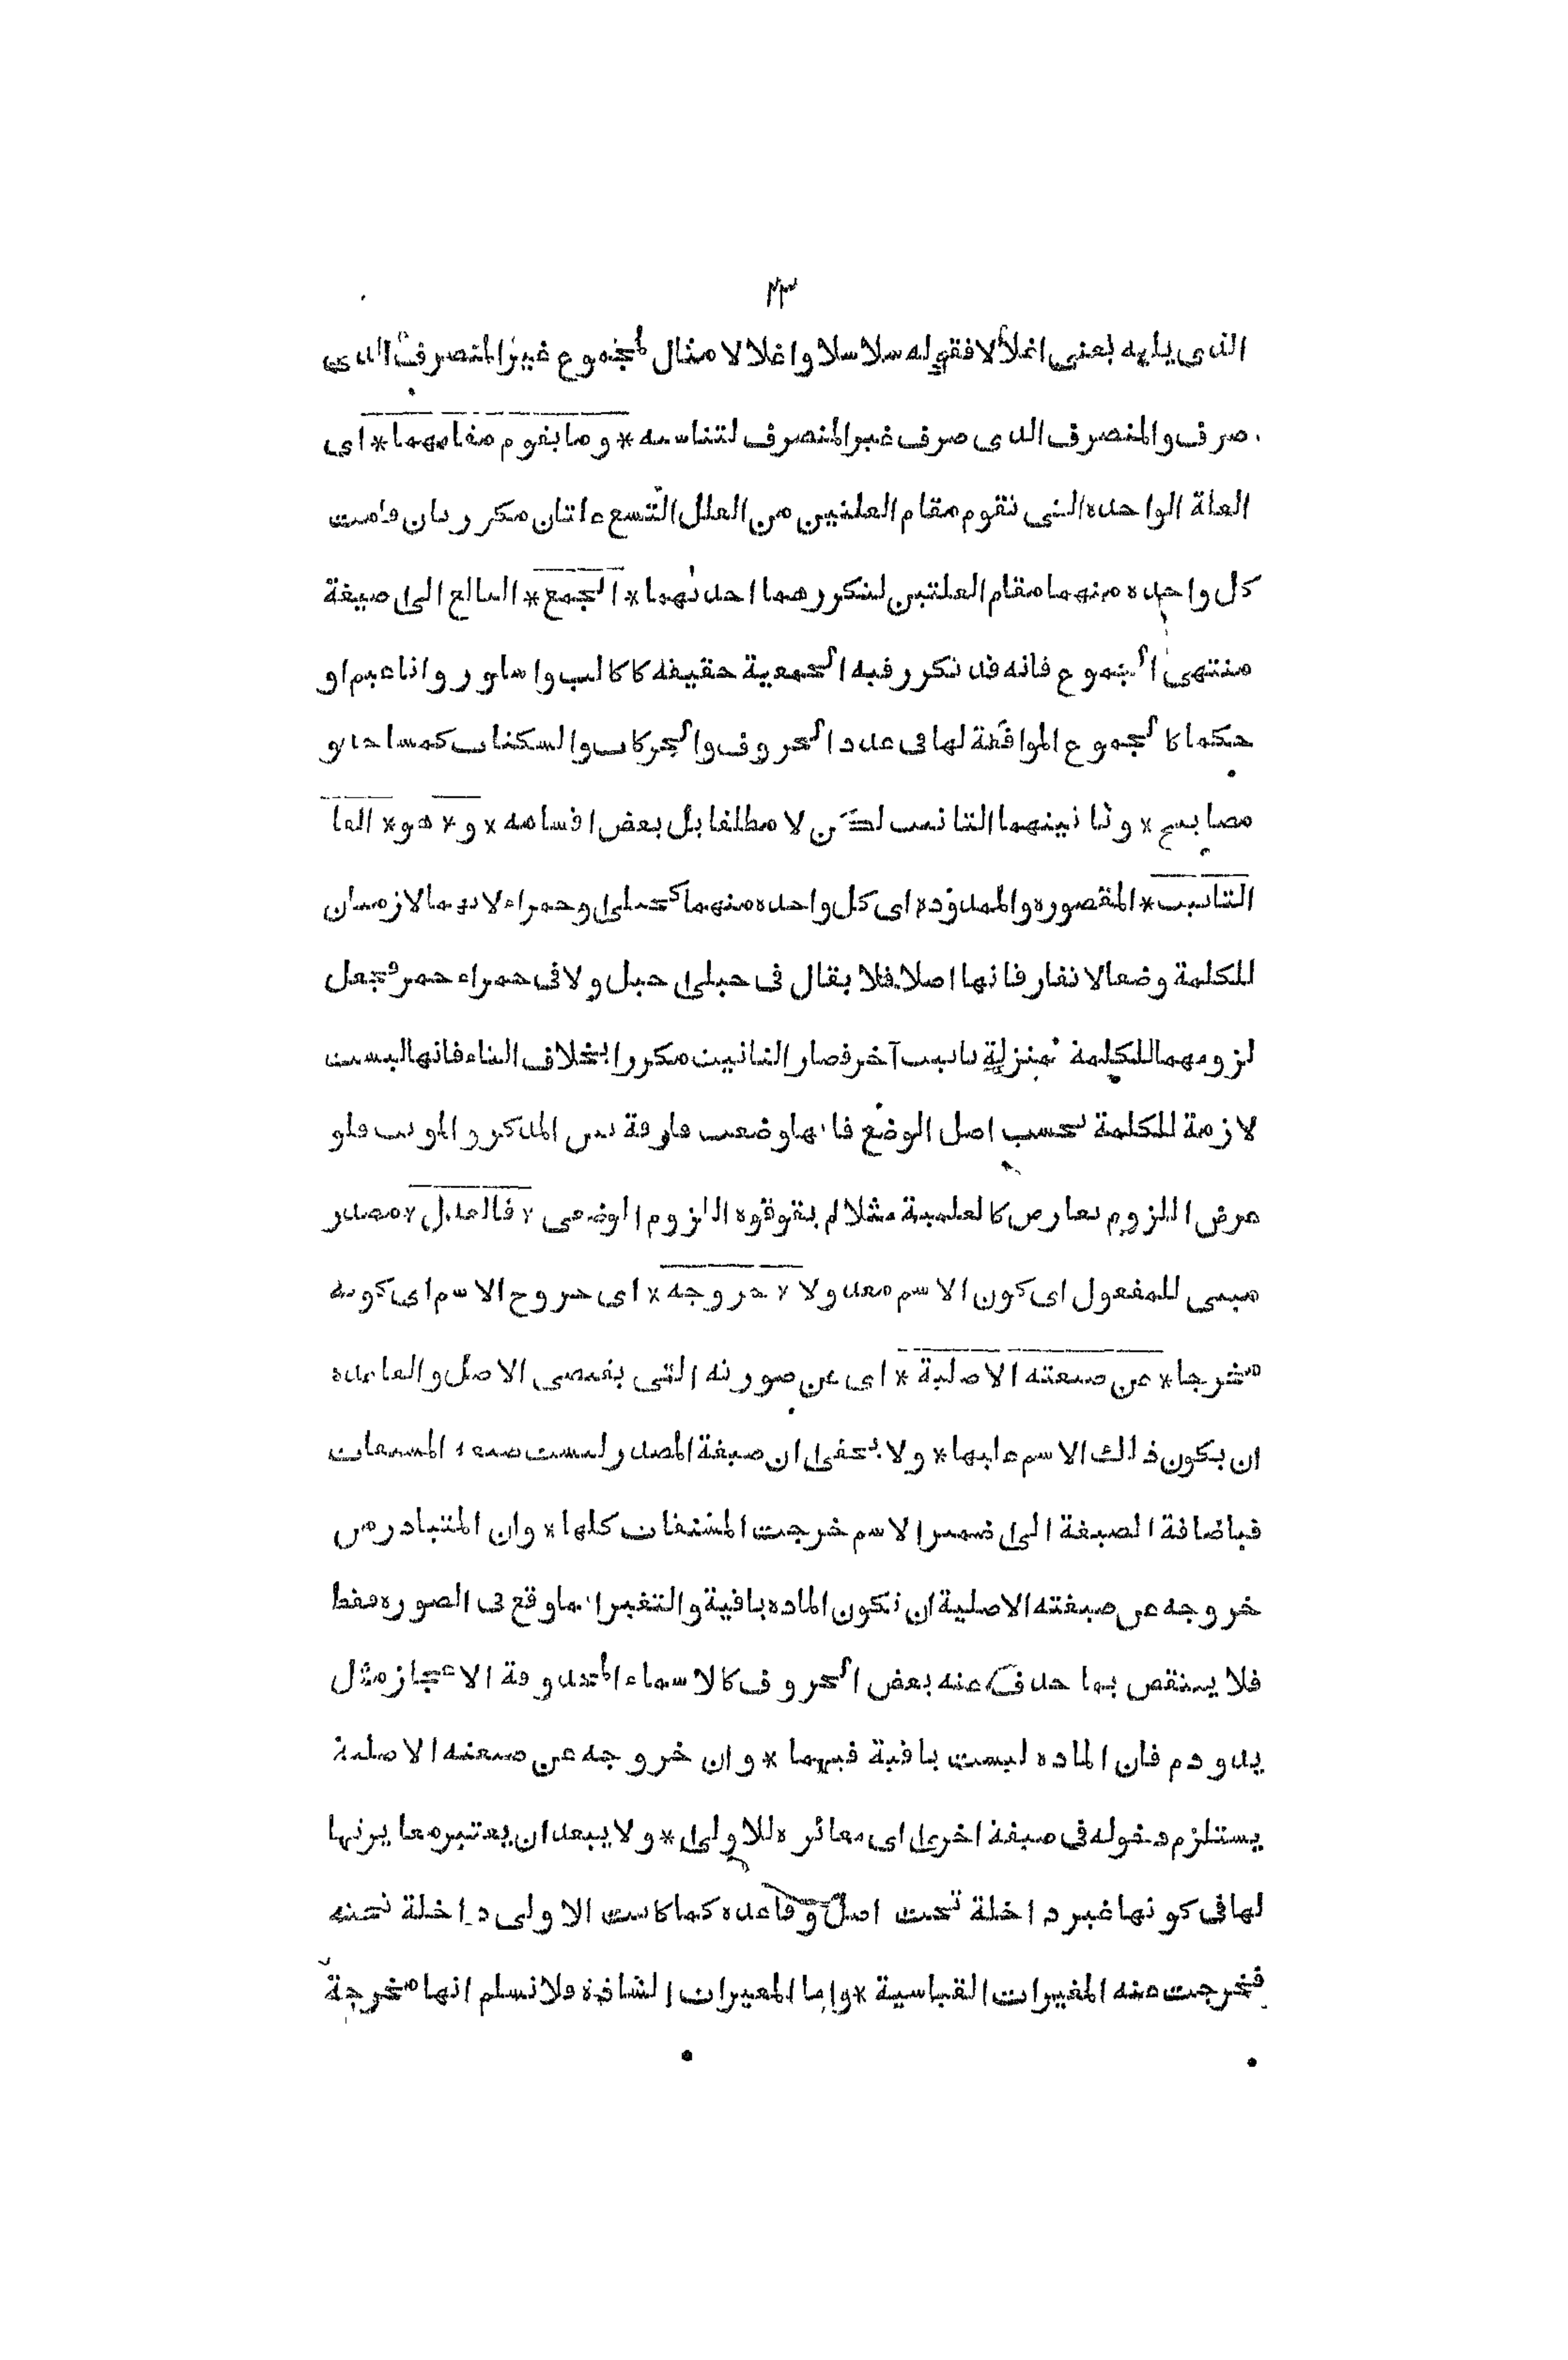 ٢٣
الذى يليه بعنى اغلالا فقوله سلاسلا واغلالا مثال لمجموع غير المنصرف الذى
صرف والمنصرف الذى صرف غير المنصرف لتناسبه * وما يقوم مقامهما * اى
العلة الواحدة التى تقوم مقام العلتين من العلل التسع علتان مكررتان قامت
كل واحدة منهما مقام العلتين لتكررهما احدتهما * الجمع * البالغ الى صيغة
منتهى الجموع فانه قد تكرر فيه الجمعية حقيقة كاكالب واساور واناعيم او
حكما كالجموع الموافقة لها فى عدد الحروف والحركات والسكنات كمساجد و
مصابيح * وثانيتهما التانيث لكن لا مطلقا بل بعض اقسامه * و * هو * الفا
التانيث * المقصورة والممدودة اى كل واحدة منهما كحبلى وحمراء لانهما لازمتان
للكلمة وضعا لا تفارقانها اصلا فلا يقال فى حبلى حبل ولا فى حمراء حمر فجعل
لزومهما للكلمة بمنزلة تانيث آخر فصار التانيث مكررا بخلاف التاء فانها ليست
لازمة للكلمة بحسب اصل الوضع فانها وضعت فارقة بين المذكر والمونث فلو
عرض اللزوم بعارض كالعلمية مثلا لم يقو قوة اللزوم الوضعى * فالعدل * مصدر
مبنى للمفعول اى كون الاسم معدولا * خروجه * اى خروج الاسم اى كونه
مخرجا * عن صيغته الاصلية * اى عن صورته التى يقتضى الاصل والقاعدة
ان يكون ذلك الاسم عليها * ولا يخفى ان صيغة المصدر ليست صيغة المشتقات
فباضافة الصيغة الى ضمير الاسم خرجت المشتقات كلها * وان المتبادر من
خروجه عن صيغته الاصلية ان تكون المادة باقية والتغير انما وقع فى الصورة فقط
فلا ينتقض بما حذف عنه بعض الحروف كالاسماء المحذوفة الاعجاز مثل
يد ودم فان المادة ليست باقية فيهما * وان خروجه عن صيغته الاصلية
يستلزم دخوله فى صيغة اخرى اى مغائرة للاولى * ولا يبعد ان يعتبر مغايرتها
لها فى كونها غير داخلة تحت اصل وقاعدة كما كانت الاولى داخلة تحته
فخرجت عنه المغيرات القياسية * واما المغيرات الشاذة فلا نسلم انها مخرجة